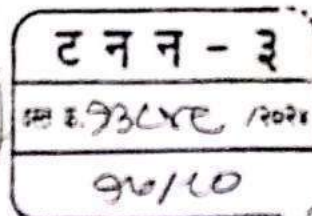 ट न न - ३
दस्त क्र. १३८४९ /२०२४
१७/८०